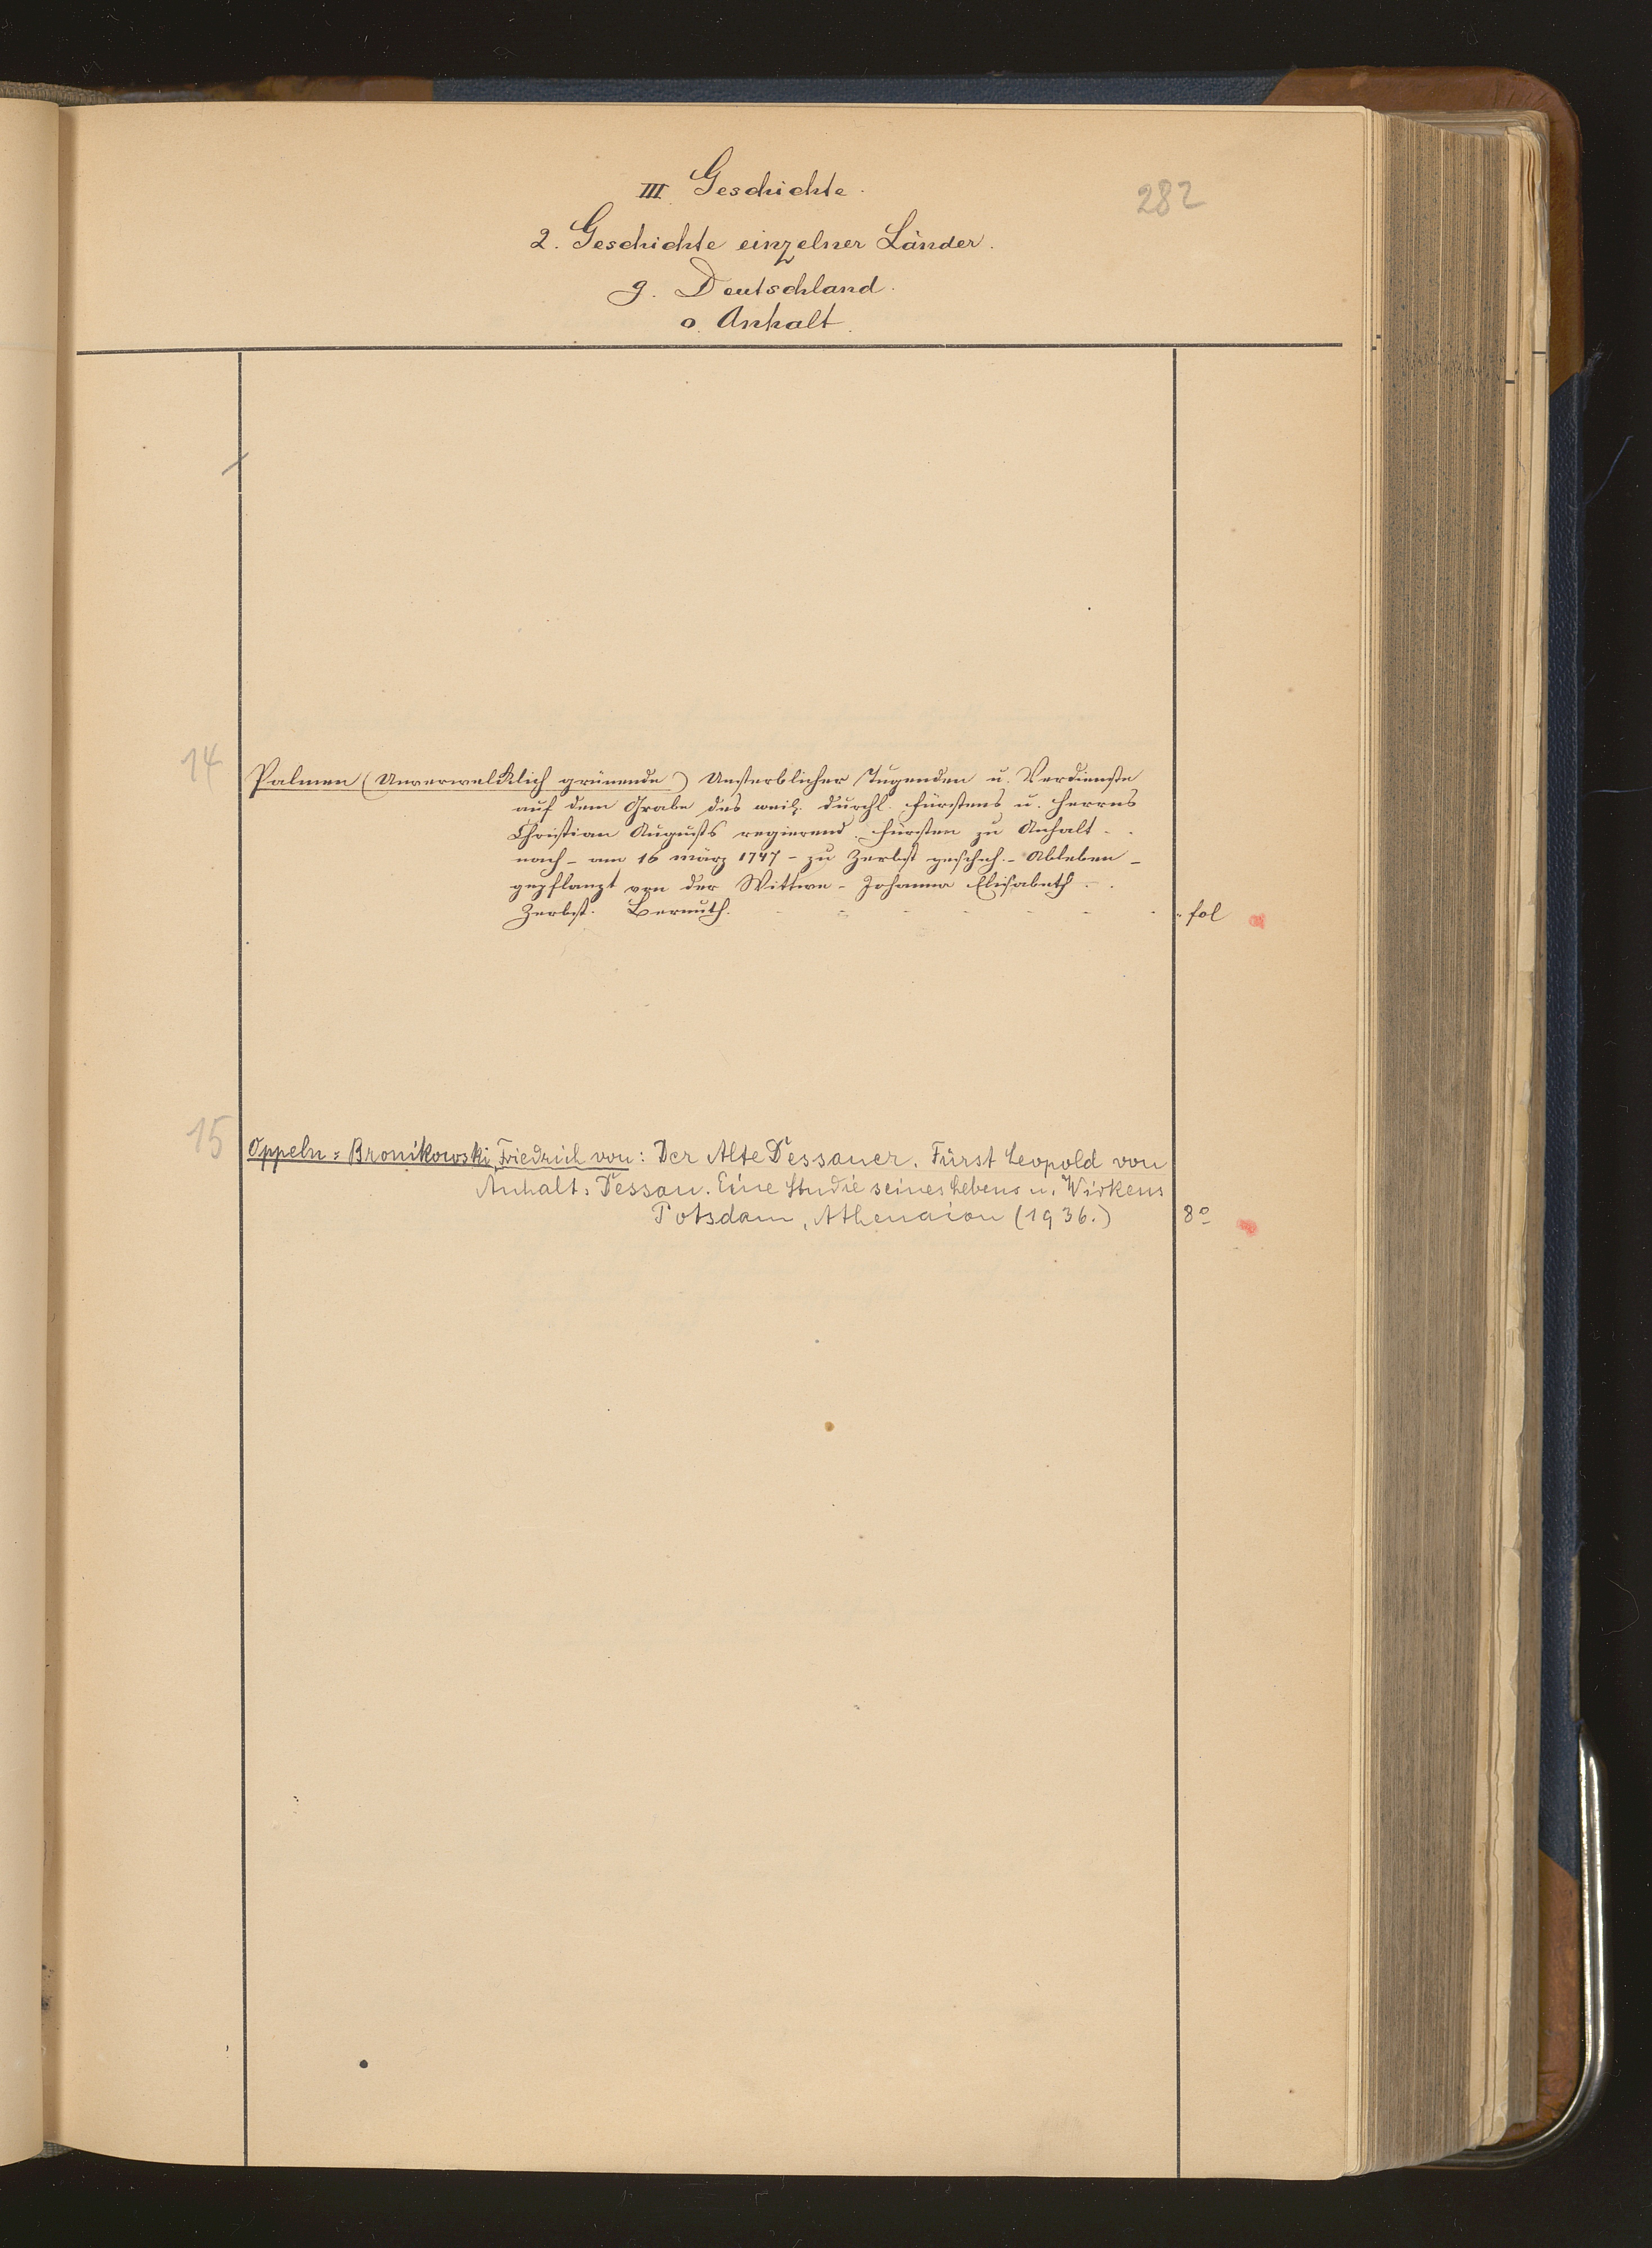 III. Geschichte.
282
2. Geschichte einzelner Länder.
g. Deutschland.
o. Anhalt.
14
Palmen (Unverwelklich grünende) Unsterblicher Tugenden u. Verdienste
auf dem Grabe des weil. durchl. Fürstens u. Herrns
Christian Augusts regierend. Fürsten zu Anhalt . .
nach - am 16 März 1747 - zu Zerbst gescheh. - Ableben -
gepflanzt von der Wittwe - Johanna Elisabeth . .
Zerbst. Bermuth. - - - - - - - fol
15
Oppeln=Bronikowski, Friedrich von: Der Alte Dessauer. Fürst Leopold von
Anhalt=Dessau. Eine Studie seines Lebens u. Wirkens
Potsdam, Athenaion (1936.) 8º